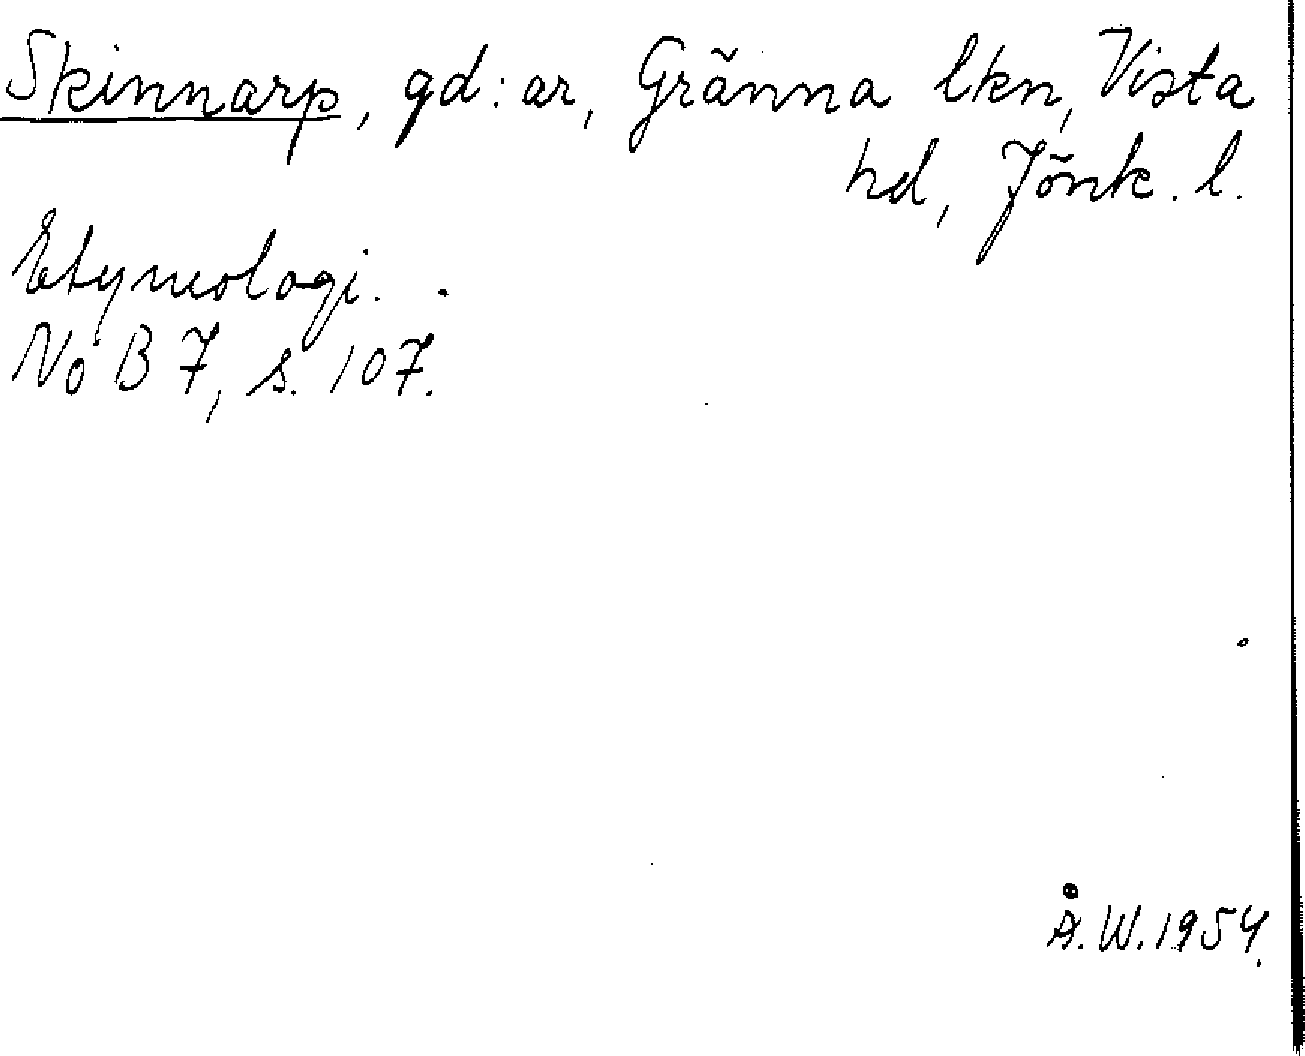 Skinnarp, gd:ar, Gränna lkn, Vista
hd, Jönk. l.
Etymologi.
NoB 7, s. 107.
Å. W. 1954.